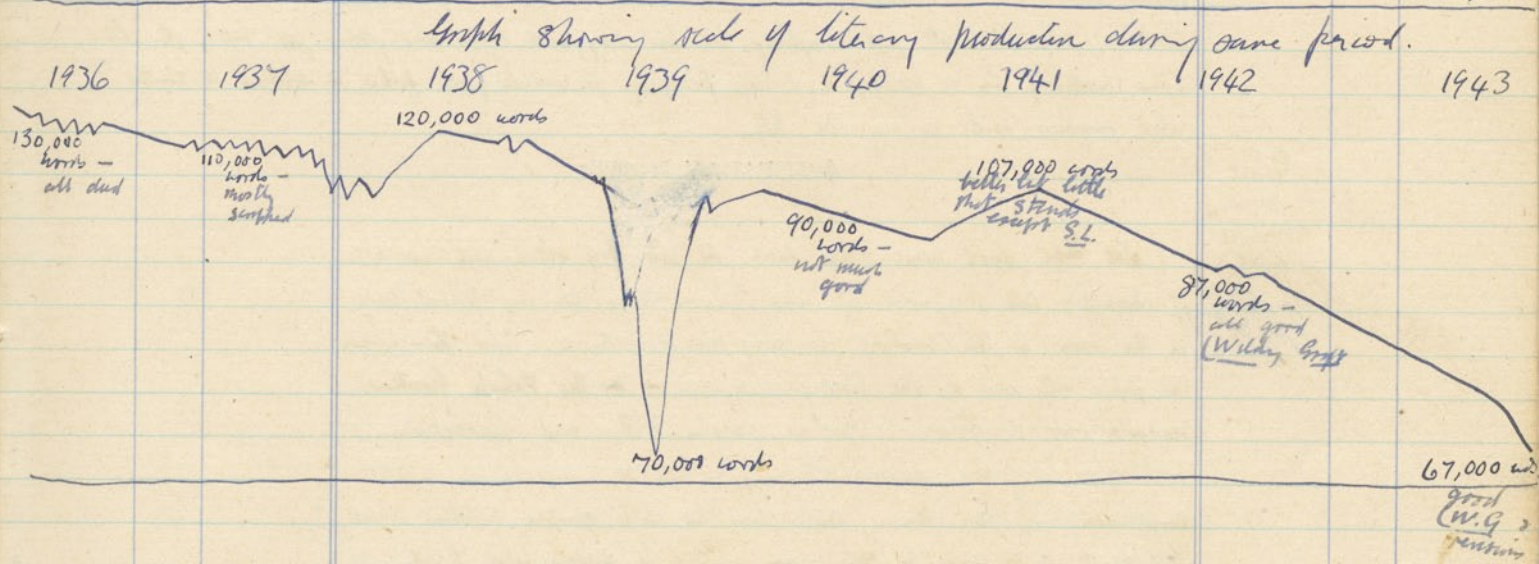 Graph showing scale of literary production during same period.
1936 1937 1938 1939 1940 1941 1942 1943
130,000
words –
all dud
110,000
words –
mostly
scrapped
120,000 words
70,000 words
90,000
words –
not much
good
107,000 words
better but little
that stands
except S.L.
87,000
words –
all good
(Wilding Graft
67,000 wds
good
(W.G
revision